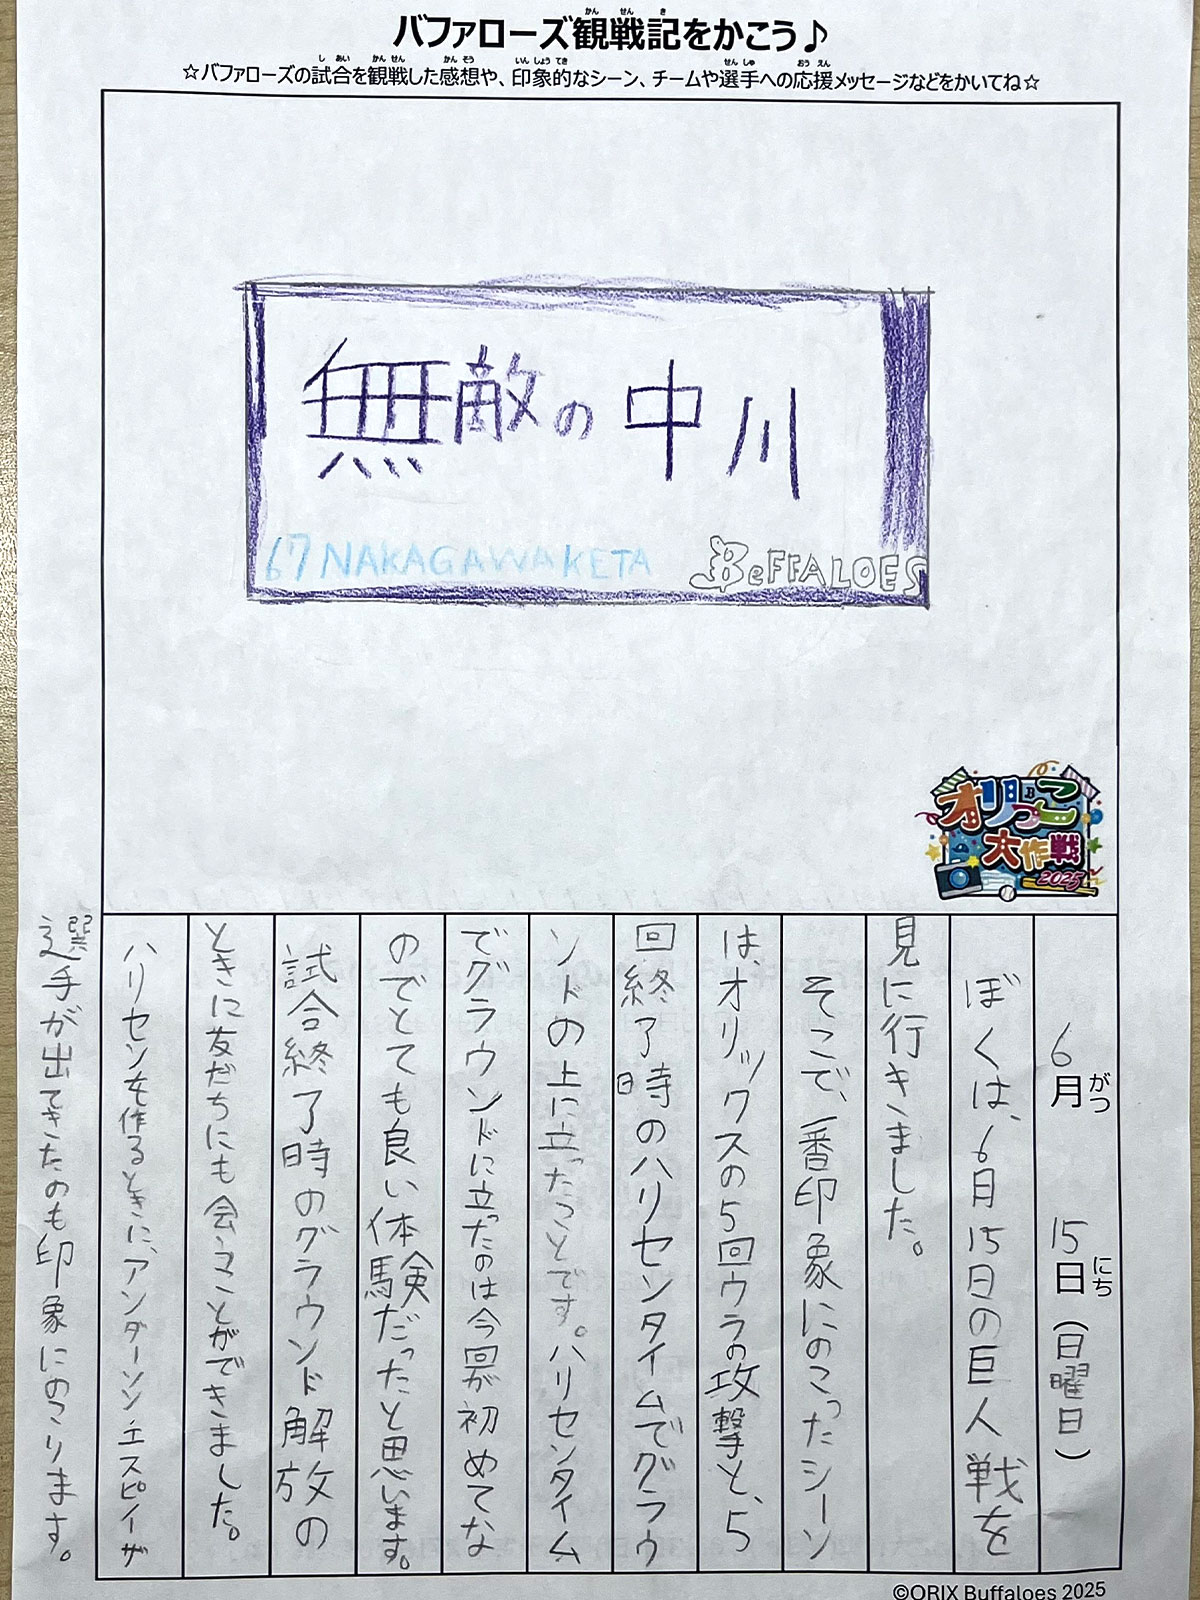 バファローズ観戦記をかこう♪
☆バファローズの試合を観戦した感想や、印象的なシーン、チームや選手への応援メッセージなどをかいてね☆
無敵の中川
67 NAKAGAWA KETA
BeFFALOES
オリっこ
大作戦
2025
6月15日(日曜日)
ぼくは、6月15日の巨人戦を
見に行きました。
そこで、一番印象にのこったシーン
は、オリックスの5回ウラの攻撃と、5
回終了時のハリセンタイムでグラウ
ンドの上に立ったことです。ハリセンタイム
でグラウンドに立ったのは今回が初めてな
のでとても良い体験だったと思います。
試合終了時のグラウンド解放の
ときに友だちにも会うことができました。
ハリセンを作るときに、アンダーソン・エスピノーザ
選手が出てきたのも印象にのこります。
©ORIX Buffaloes 2025